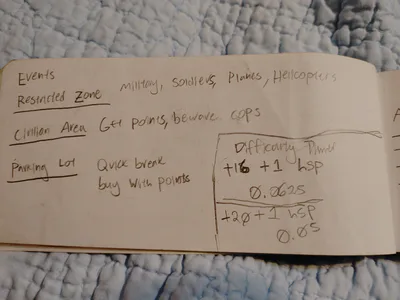 Events
Restricted Zone Military, Soldiers, Planes, Helicopters
Civilian Area Get points, beware cops
Parking Lot Quick break
buy with points
Difficulty Timer
+16 +1 hsp
0.0625
+20 +1 hsp
0.05